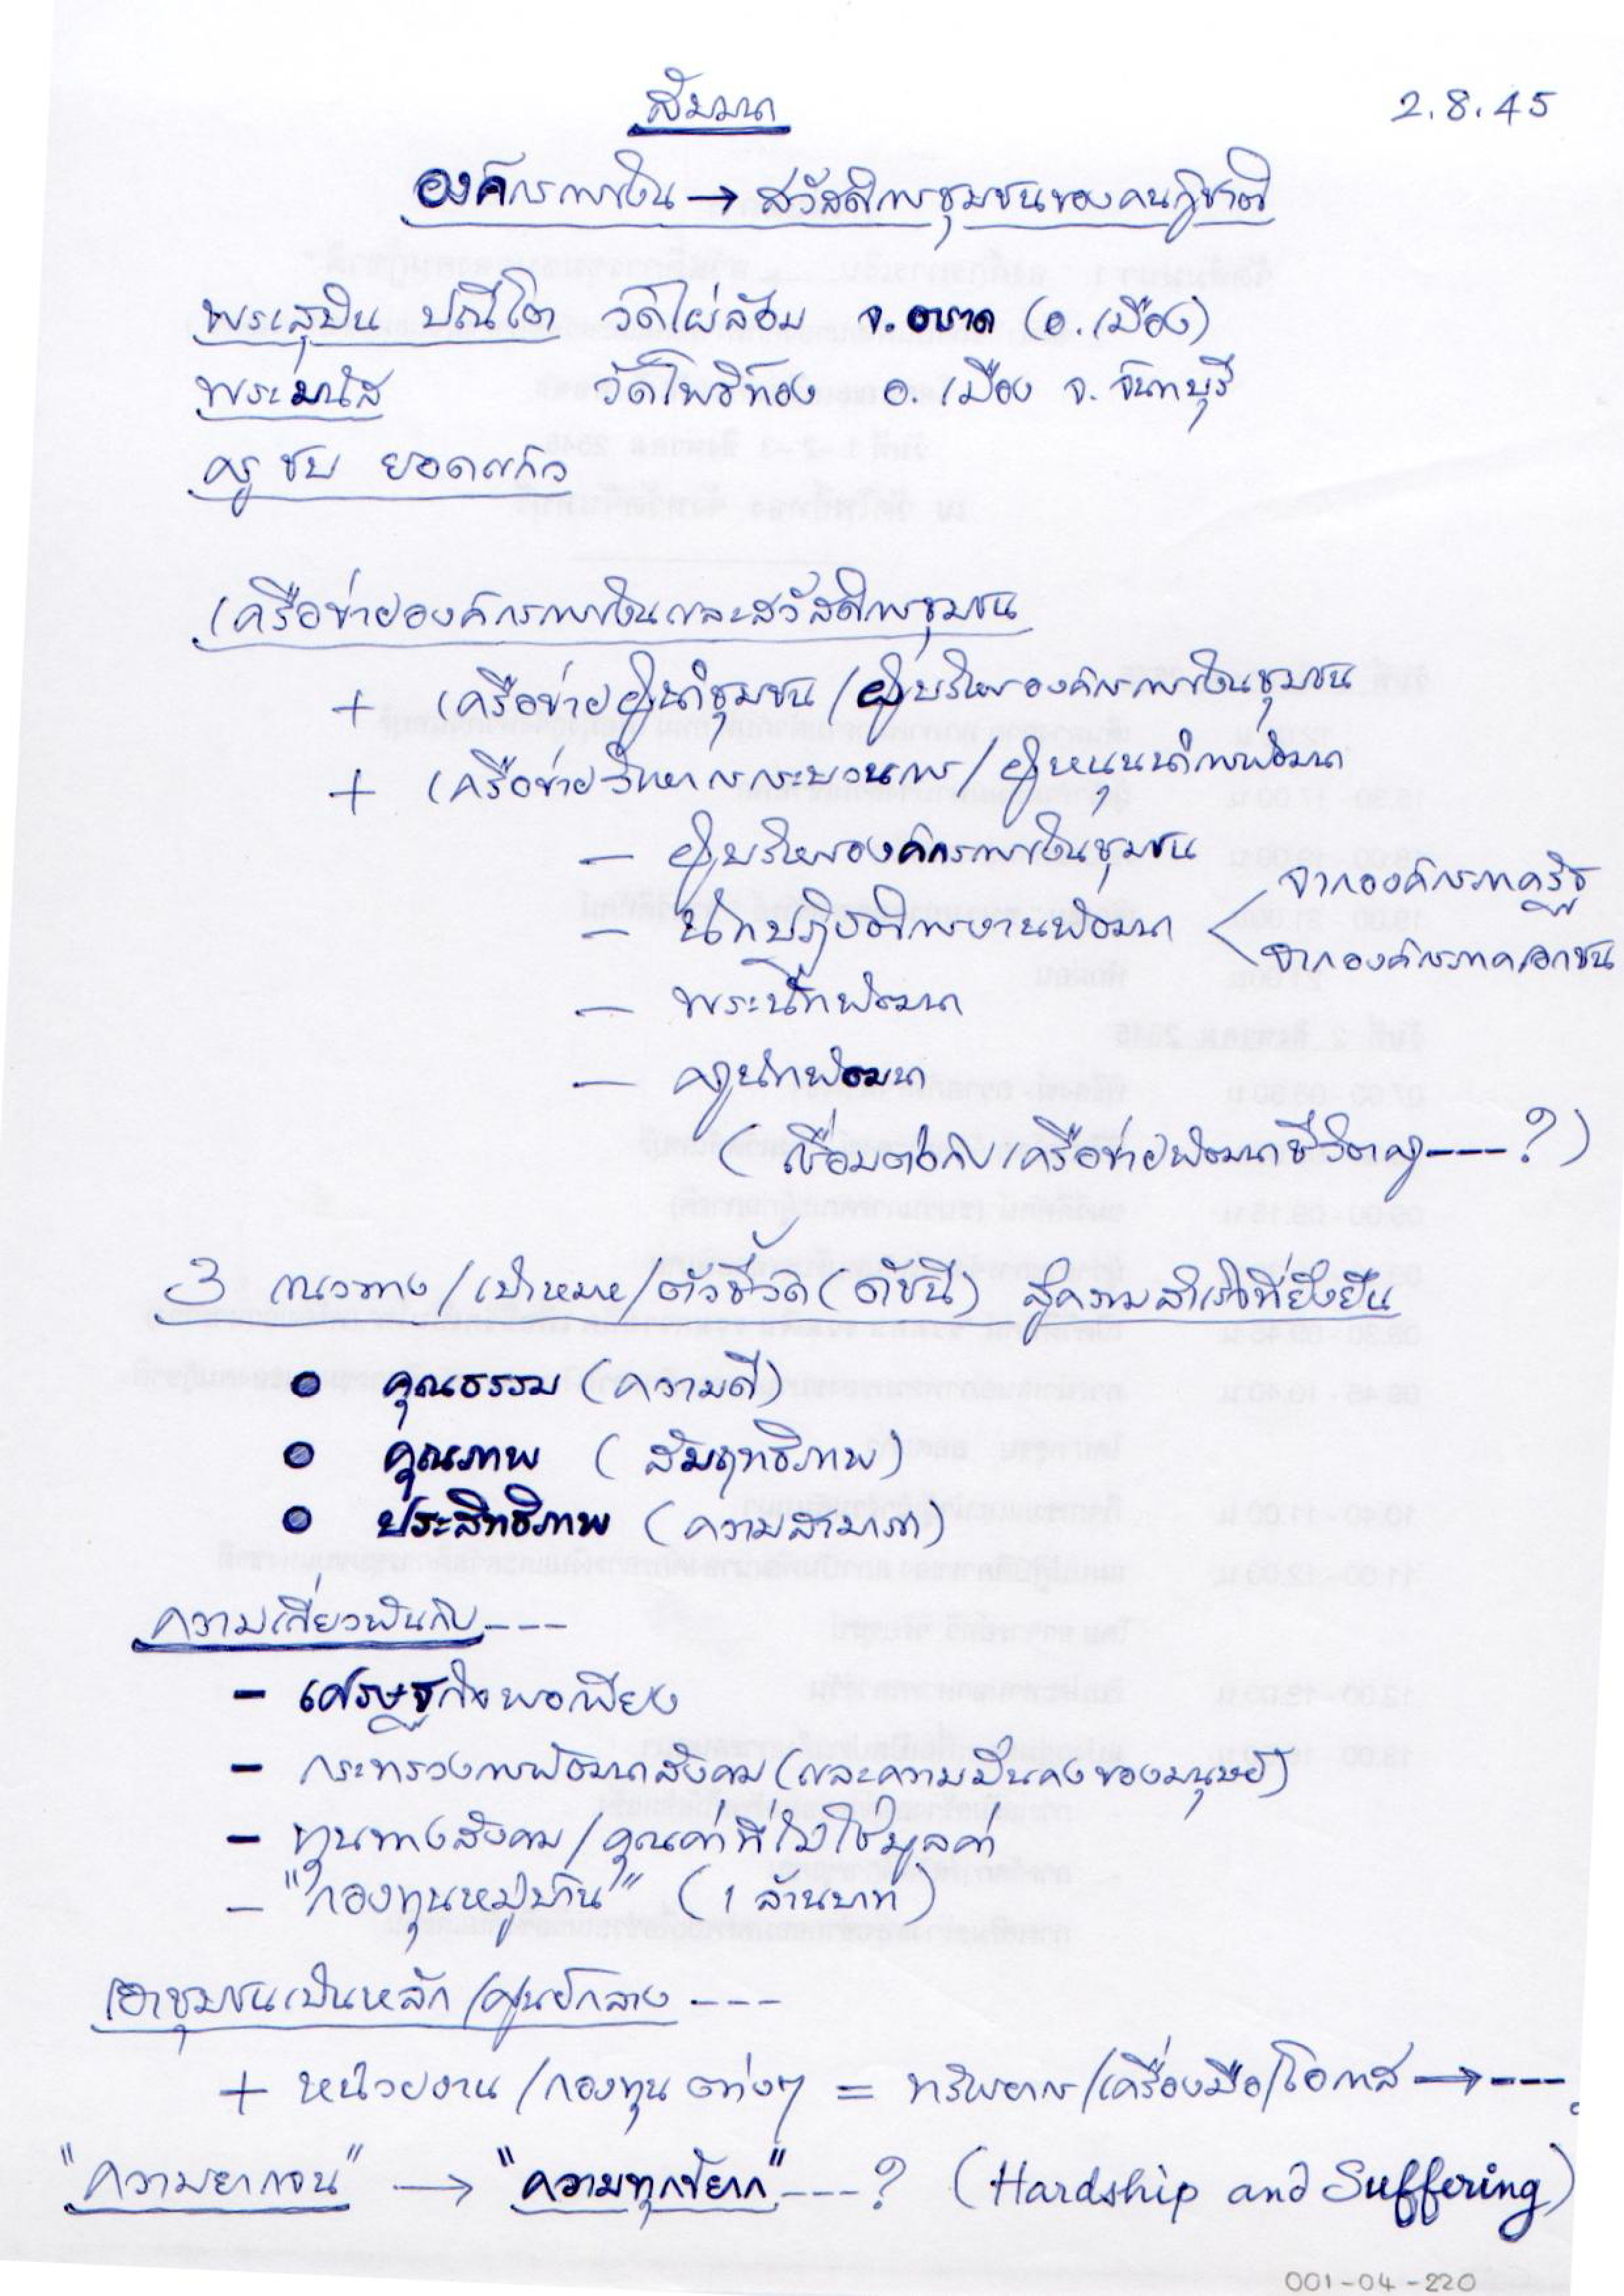 สัมมนา
2.8.45
องค์กรการเงิน → สวัสดิการชุมชนของคนกู้ชาติ
พระสุบิน ปณีโต วัดไผ่ล้อม จ.ตราด (อ.เมือง)
พระมนัส วัดโพธิ์ทอง อ.เมือง จ.จันทบุรี
ครูชบ ยอดแก้ว
เครือข่ายองค์กรการเงินและสวัสดิการชุมชน
+ เครือข่ายผู้นำชุมชน/ผู้บริหารองค์กรการเงินชุมชน
+ เครือข่ายวิทยากรกระบวนการ/ผู้หนุนนำการพัฒนา
— ผู้บริหารองค์กรการเงินชุมชน
— นักปฏิบัติการงานพัฒนา < จากองค์กรภาครัฐ
จากองค์กรภาคเอกชน
— พระนักพัฒนา
— ครูนักพัฒนา
(เชื่อมต่อกับเครือข่ายพัฒนาชีวิตครู----?)
3 แนวทาง/เป้าหมาย/ตัวชี้วัด(ดัชนี) สู่ความสำเร็จที่ยั่งยืน
● คุณธรรม (ความดี)
● คุณภาพ (สัมฤทธิภาพ)
● ประสิทธิภาพ (ความสามารถ)
ความเกี่ยวพันกับ---
- เศรษฐกิจพอเพียง
- กระทรวงการพัฒนาสังคม(และความมั่นคงของมนุษย์)
- ทุนทางสังคม/คุณค่าที่ไม่ใช่มูลค่า
- "กองทุนหมู่บ้าน" (1 ล้านบาท)
เอาชุมชนเป็นหลัก/ศูนย์กลาง ---
+ หน่วยงาน/กองทุนต่างๆ = ทรัพยากร/เครื่องมือ/โอกาส → ---
"ความยากจน" → "ความทุกข์ยาก"---? (Hardship and Suffering)
001-04-220